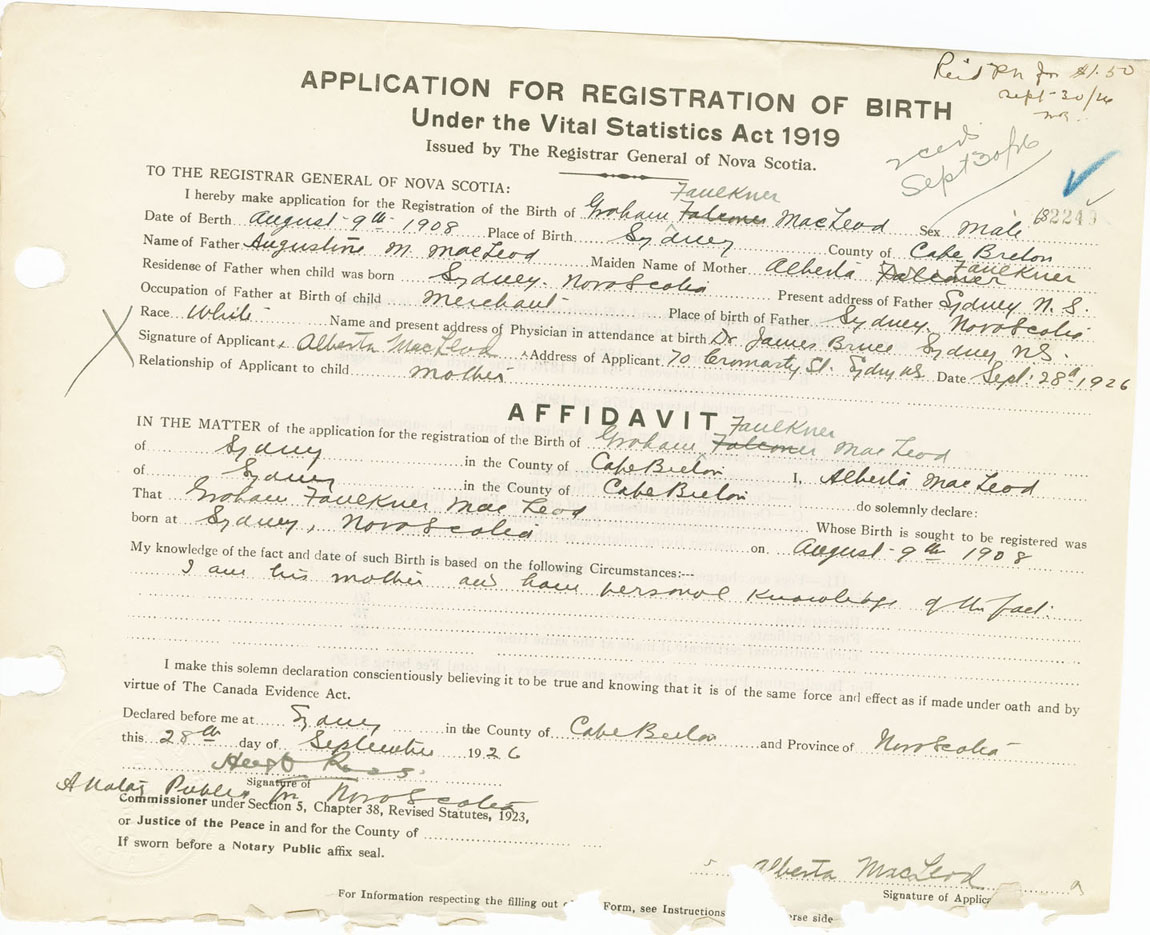 Rec'd P.N. for $1.50
Sept 30/26
APPLICATION FOR REGISTRATION OF BIRTH
Under the Vital Statistics Act 1919
Issued by The Registrar General of Nova Scotia.
Sept 30/26
TO THE REGISTRAR GENERAL OF NOVA SCOTIA:
Faulkner
I hereby make application for the Registration of the Birth of Graham Falconer MacLeod Sex Male
Date of Berth August 9th 1908 Place of Birth Sydney County of Cape Breton
Faulkner
Name of Father Augustine M. MacLeod Maiden Name of Mother Alberta Falconer
Residence of Father when child was born Sydney. Nova Scotia Present address of Father Sydney N.S.
Occupation of Father at Birth of child Merchant Place of birth of Father Sydney. Nova Scotia
Race White Name and present address of Physician in attendance at birth Dr. James Bruce Sydney N.S.
Signature of Applicant Alberta MacLeod Address of Applicant 70 Cromarty St. Sydney N.S. Date Sept. 28th 1926
Relationship of Applicant to child Mother
AFFIDAVIT
Faulkner
IN THE MATTER of the application for the registration of the Birth of Graham Falconer MacLeod
of Sydney in the County of Cape Breton I, Alberta MacLeod
of Sydney in the County of Cape Breton do solemnly declare:
That Graham Faulkner MacLeod Whose Birth is sought to be registered was
born at Sydney, Nova Scotia on August 9th 1908
My knowledge of the fact and date of such Birth is based on the following Circumstances:---
I am his mother and have personal knowledge of the fact.
I make this solemn declaration conscientiously believing it to be true and knowing that it is of the same force and effect as if made under oath and by
virtue of The Canada Evidence Act.
Declared before me at Sydney in the County of Cape Breton and Province of Nova Scotia
this 28th day of September 1926
Ross
Signature of
A Notary Public for Nova Scotia
Commissioner under Section 5, Chapter 38, Revised Statutes, 1923,
or Justice of the Peace in and for the County of
If sworn before a Notary Public affix seal.
Alberta MacLeod
Signature of Applica
For Information respecting the filling out Form, see Instructions erse side